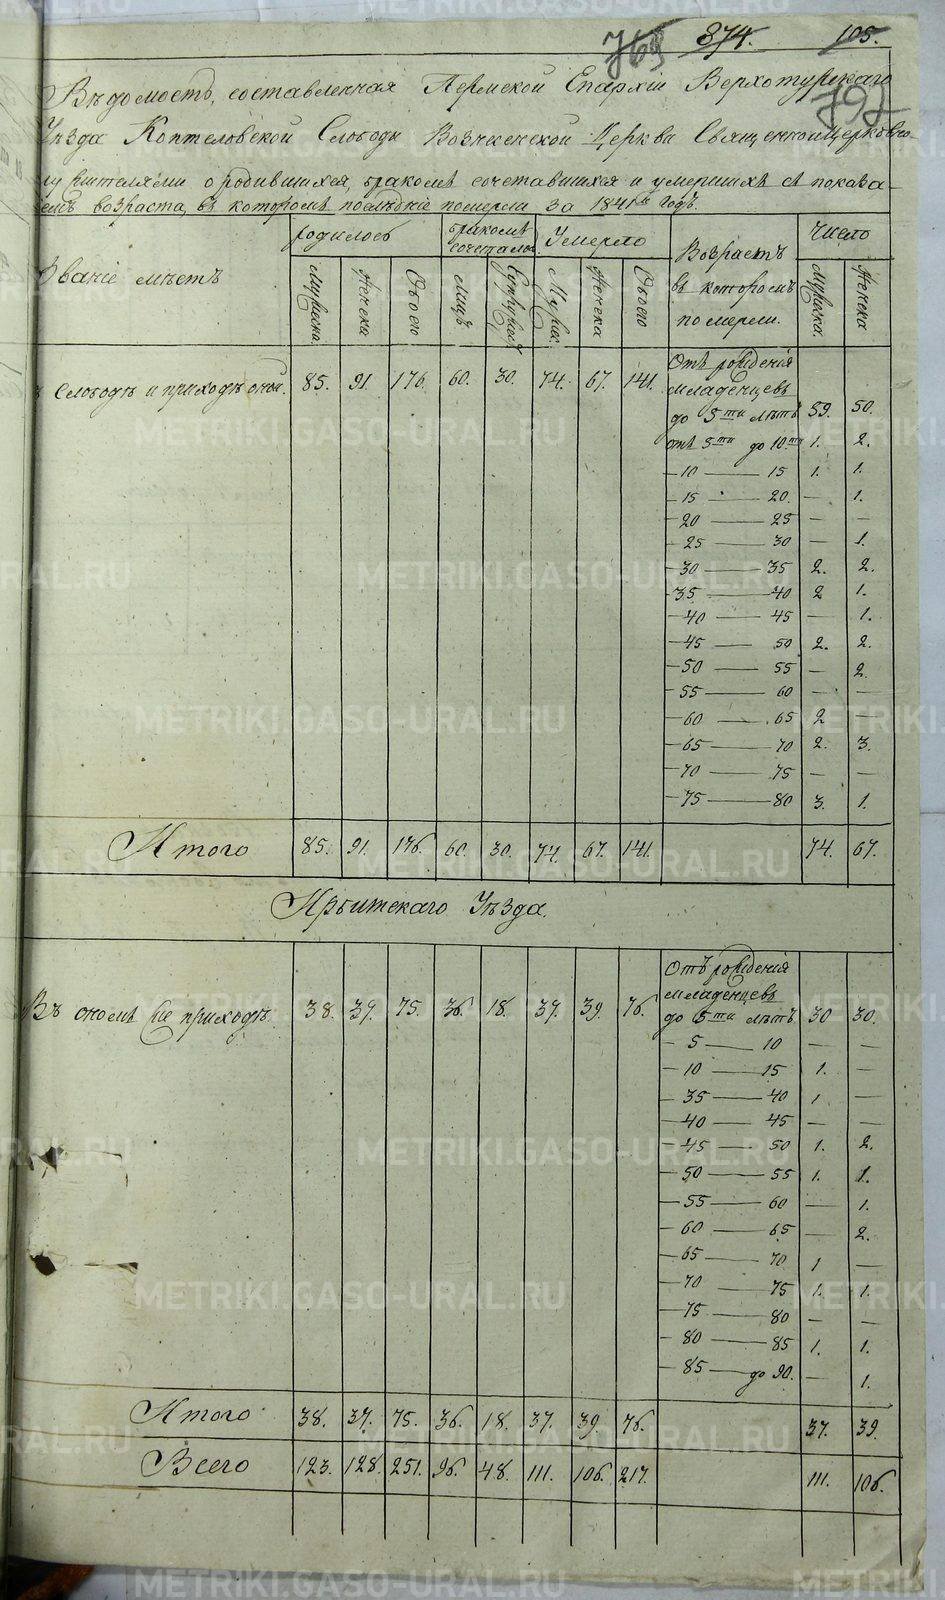 769 874. 105.
797
Вѣдомость, составленная Пермской Епархіи Верхотурскаго
Уѣзда Коптеловской Слободы Вознесенской Церкви Священноцерковно
служителями о родившихся, бракомъ сочетавшихся и умершихъ съ показа-
емъ возраста, въ которомъ послѣдніе померли за 1841й годъ.
Званіе мѣстъ
Родилось
бракомъ сочеталось
Умерло
Возрастъ въ которомъ померли.
Число
Мужска. Женска Обоего лицъ Супружест Мужск. Женска Обоего Мужска. Женска
Слободѣ и приходѣ оной. 85. 91. 176. 60. 30. 74. 67. 141.
Отъ рожденія
младенцевъ
до 5ти лѣтъ 59. 50.
отъ 5ти до 10ти 1. 2.
— 10 — 15 1. 1.
— 15 — 20. — 1.
— 20 — 25 — —
— 25 — 30 — 1.
— 30 — 35 2. 2.
— 35 — 40 2 1.
— 40 — 45 — 1.
— 45 — 50 2. 2.
— 50 — 55 — 2.
— 55 — 60 — —
— 60 — 65 2 —
— 65 — 70 2. 3.
— 70 — 75 — —
— 75 — 80 3. 1.
Итого 85. 91. 176. 60. 30. 74. 67. 141. 74. 67.
Ирбитскаго Уѣзда.
Въ ономъ же приходѣ. 38. 37. 75. 36. 18. 37. 39. 76.
Отъ рожденія
младенцевъ
до 5ти лѣтъ 30 30.
— 5 — 10 — —
— 10 — 15 1. —
— 35 — 40 1 —
— 40 — 45 — —
— 45 — 50 1. 2.
— 50 — 55 1. 1.
— 55 — 60 — 1.
— 60 — 65 — 2.
— 65 — 70 1 —
— 70 — 75 1. 1.
— 75 — 80 — —
— 80 — 85 1. 1.
— 85 — до 90. — 1.
Итого 38. 37. 75. 36. 18. 37. 39. 76. 37. 39.
Всего 123. 128. 251. 96. 48. 111. 106. 217. 111. 106.
METRIKI.GASO-URAL.RU